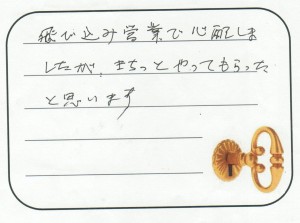 飛び込み営業で心配しま
したが、きちっとやってもらった
と思います